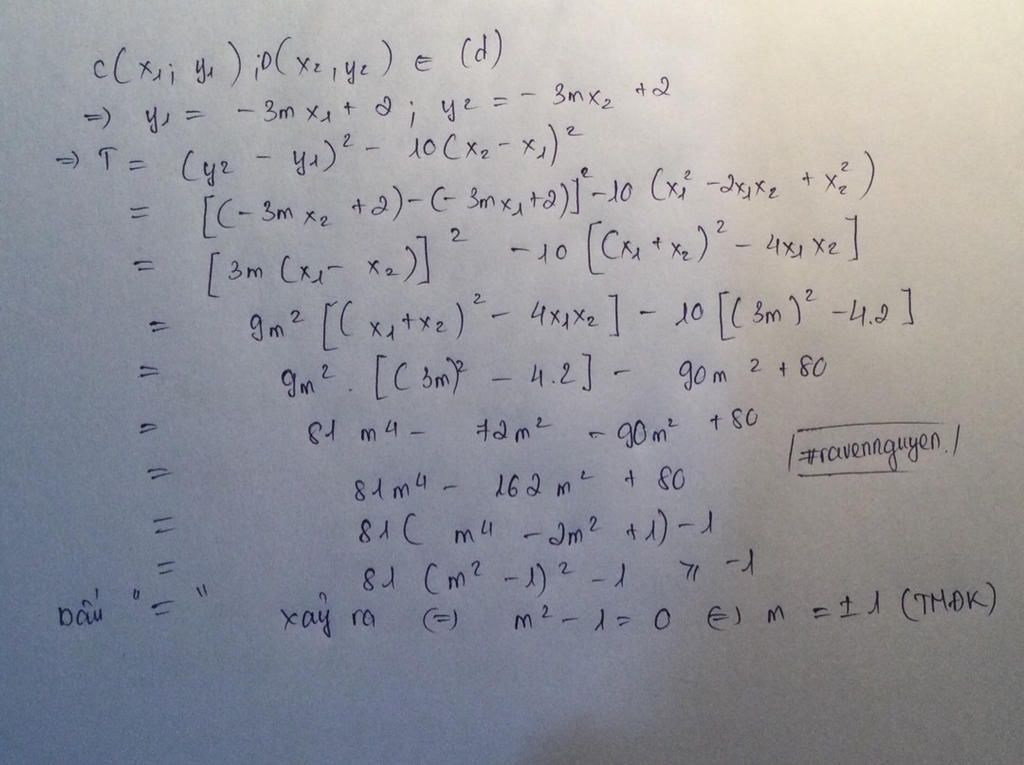 C(x₁; y₁); D(x₂, y₂) ∈ (d)
⇒ y₁ = -3mx₁ + 2; y₂ = -3mx₂ + 2
⇒ T = (y₂ - y₁)² - 10(x₂ - x₁)²
= [(-3mx₂ + 2) - (-3mx₁ + 2)]² - 10(x₁² - 2x₁x₂ + x₂²)
= [3m(x₁ - x₂)]² - 10[(x₁ + x₂)² - 4x₁x₂]
= 9m²[(x₁ + x₂)² - 4x₁x₂] - 10[(3m)² - 4.2]
= 9m².[(3m)² - 4.2] - 90m² + 80
= 81m⁴ - 72m² - 90m² + 80
#ravennguyen.
= 81m⁴ - 162m² + 80
= 81(m⁴ - 2m² + 1) - 1
= 81(m² - 1)² - 1 ≥ -1
Dấu "=" xảy ra (=) m² - 1 = 0 (=) m = ±1 (TMĐK)